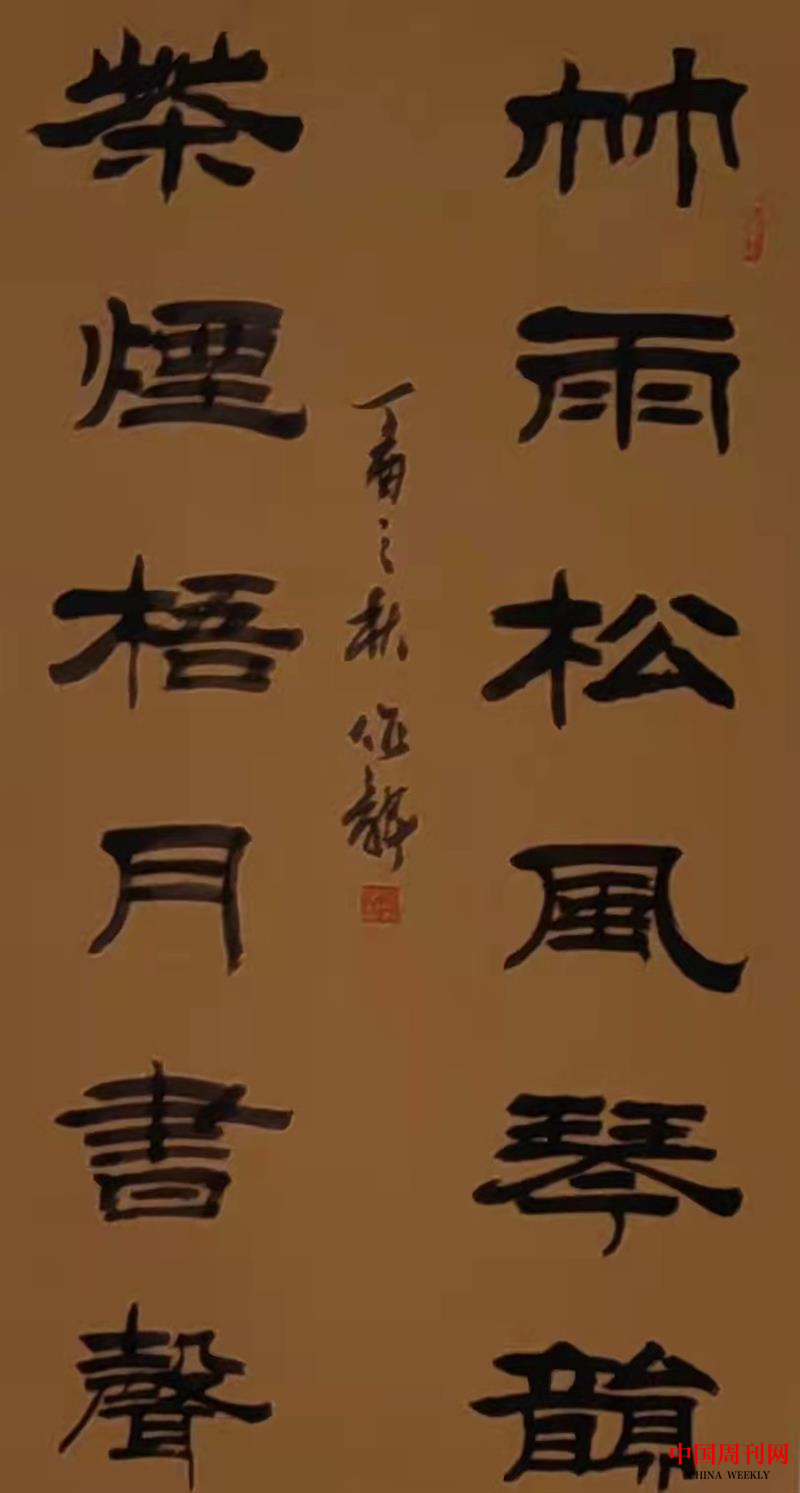 竹雨松風琴韻
茶煙梧月書聲
丁酉之秋
中国周刊网
CHINA WEEKLY